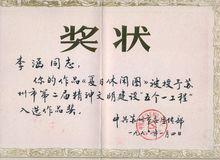 奖状
李涵同志:
你的作品《夏日休闲图》被授予苏
州市第二届精神文明建设“五个一工程”
入选作品奖。
中共苏州市委宣传部
一九九八年一月四日